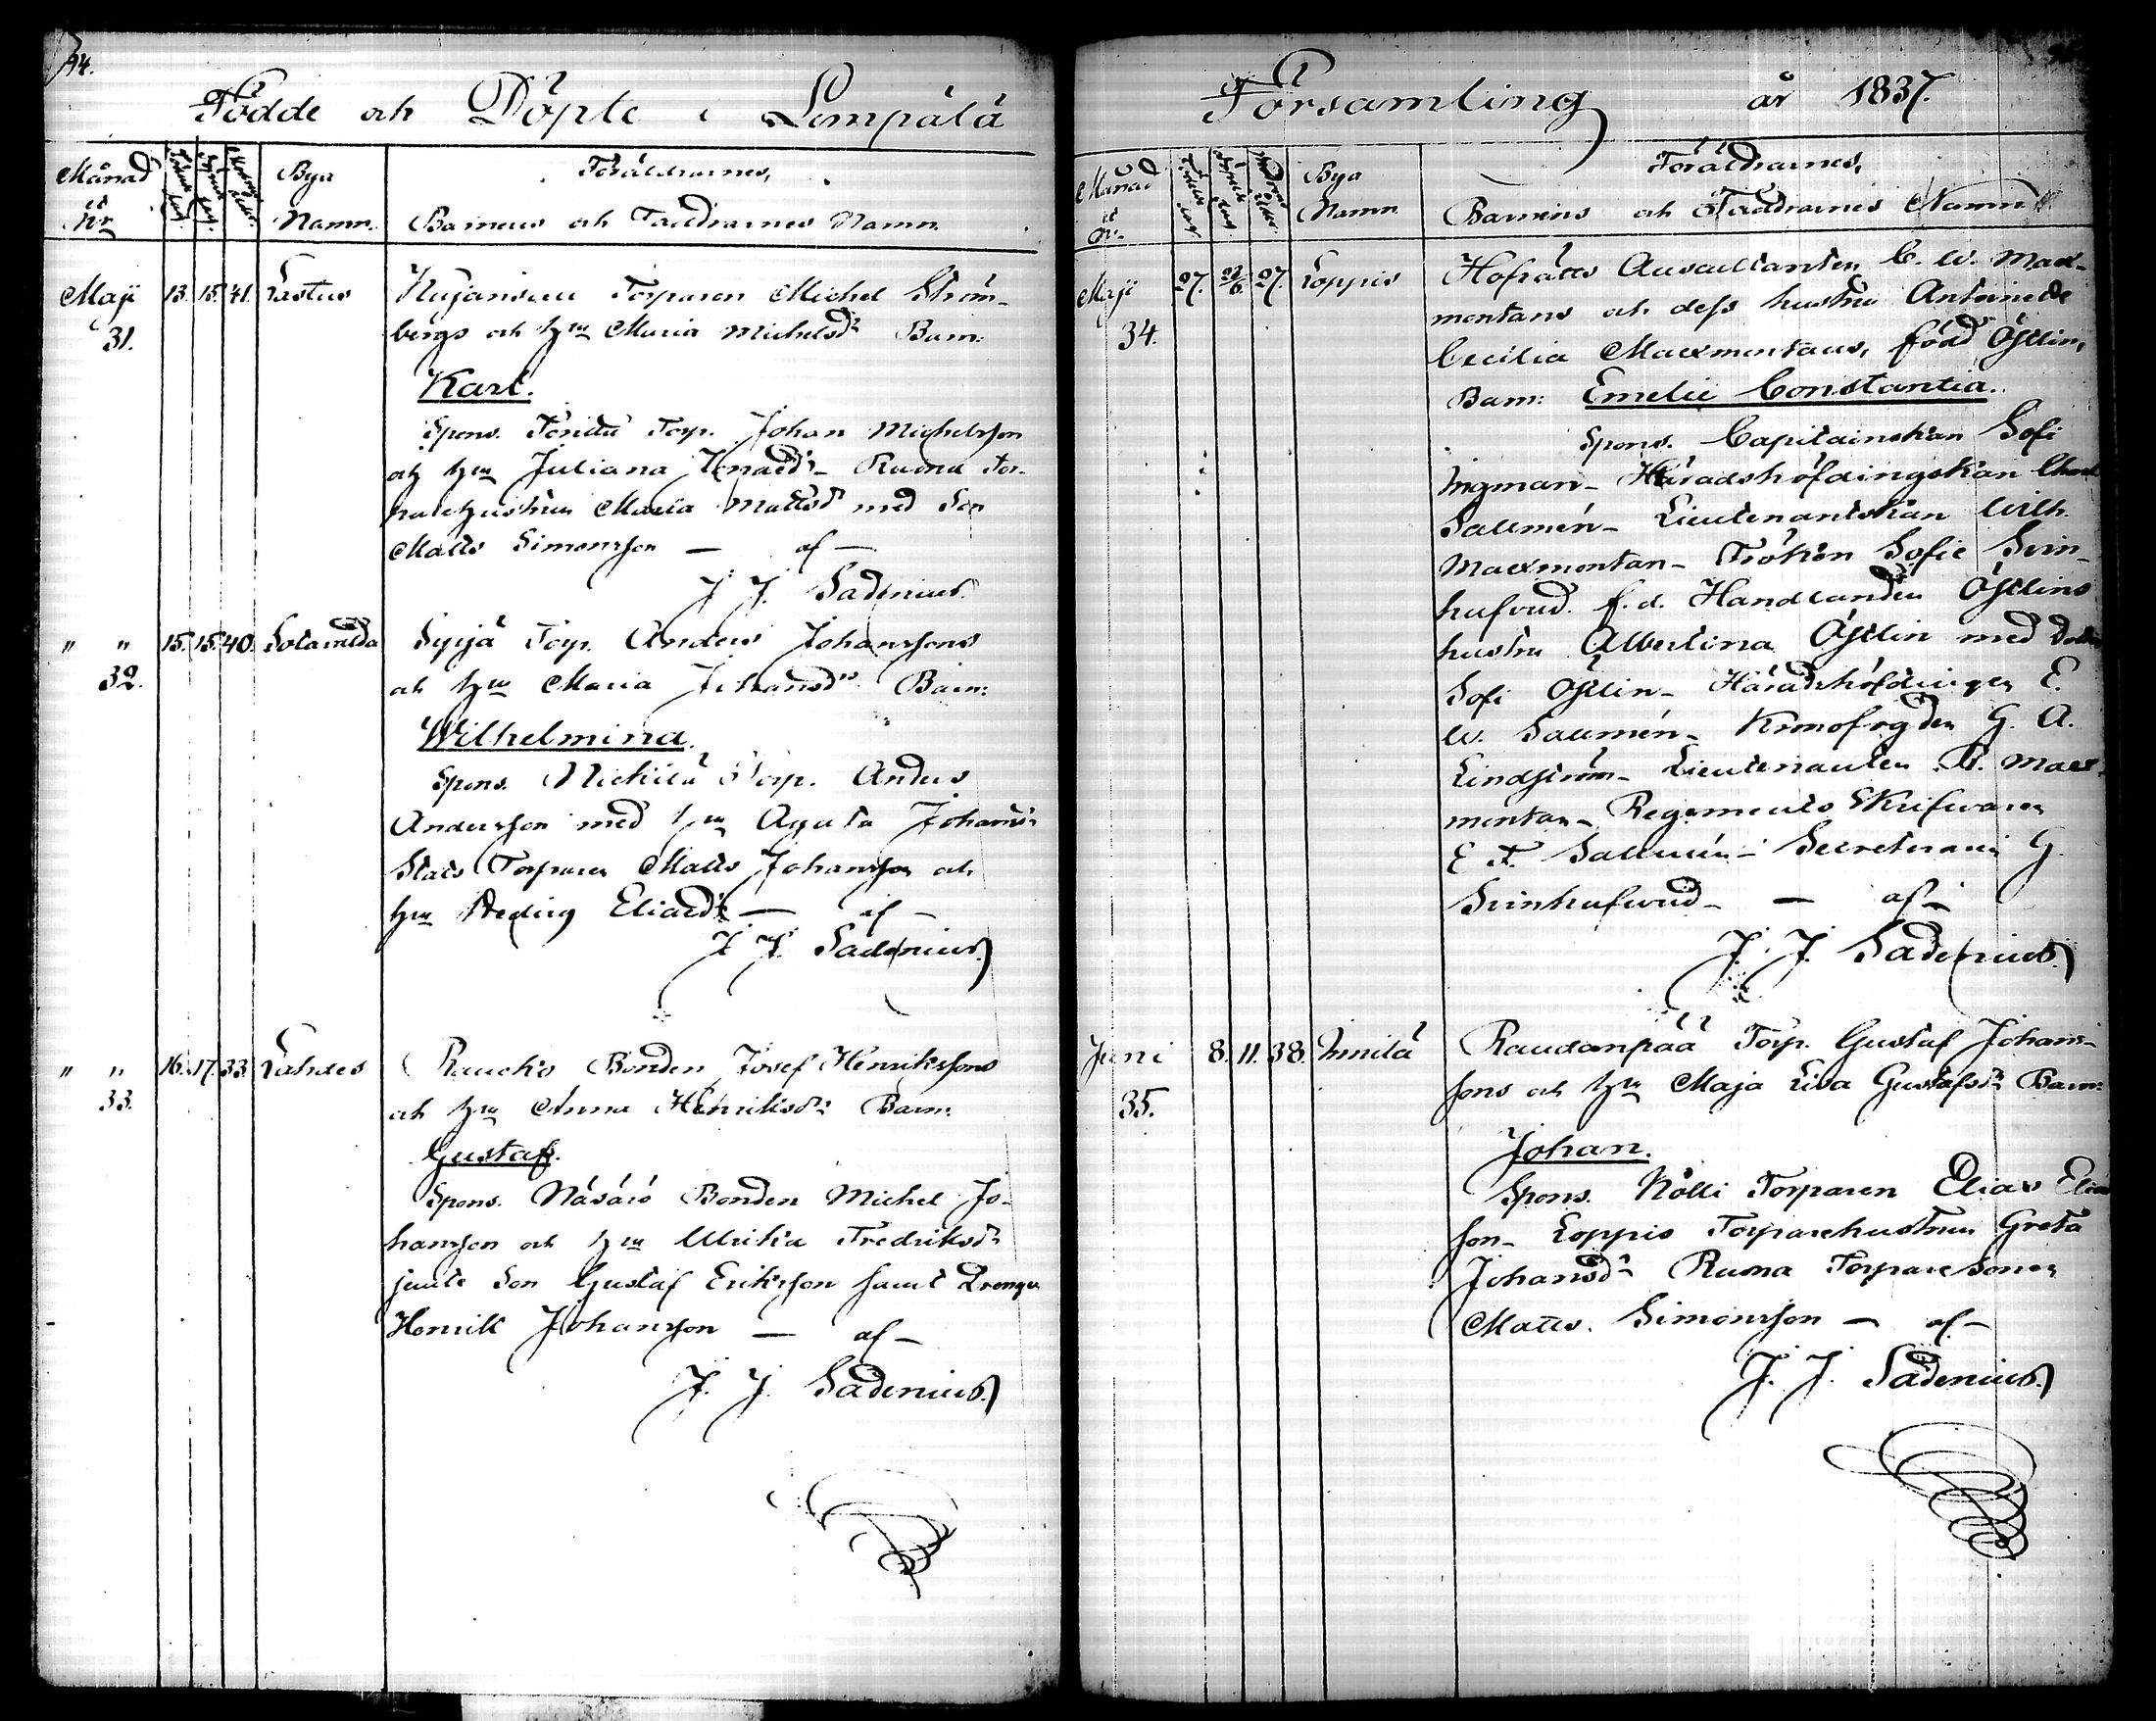 94.
Födde och Döpte i Lempälä
Månad
Nr
Bya
Namn.
Föräldrarnes,
Barnens och Faddrarnes Namn
Maji 13. 15. 41. Lastus
31.
Torparen Michel Ström-
bergs och hru Maria Michelsdr Barn:
Karl.
Spons. Torp. Johan Michelsson
och hru Juliana Ruona Tor-
parehustrun Maria Mattsdr med Son
Matts Simonsson — af —
J. J. Sadenius.
" " 15. 15. 40. Sotavalda
32.
Syrjä Torp. Anders Johanssons
och hru Maria Johansdr Barn:
Wilhelmina.
Spons. Nickilä Torp. Anders
Andersson med hru Agata Johansdr
Torparen Matts Johansson och
hru Hedvig Eliasdr — af —
J. J. Sadenius.
" " 16. 17. 33. Lahdes
33.
Bonden Josef Henrikssons
och hru Anna Henriksdr Barn:
Gustaf.
Spons. Näsärö Bonden Michel Jo-
hansson och hru Ulrika Fredriksdr
jemte Son Gustaf Eriksson samt Drengen
Henrik Johansson — af —
J. J. Sadenius.
Församling år 1837.
Månad
Nr.
Bya
Namn
Föräldrarnes,
Barnens och Faddrarnes Namn
Maji 27. 22/6. 27. Loppis
34.
Hofrätts Auscultanten C. W. Maex-
montans och dess hustru Antoinette
Cecilia Maexmontans, född Östlin,
Barn: Emelie Constantia.
Spons. Capitainskan Sofi
Ingman – Häradshöfdingskan
Sallmén – Lieutenantskan Wilh.
Maexmontan – Fröken Sofie Svin-
hufvud. f.d. Handlanden Östlins
hustru Albertina Östlin med
Sofi Östlin – Häradshöfdingen E.
W. Sallmén – Kronofogden G. A.
Lindström – Lieutenanten Maex-
montan – Regements Skrifvaren
E. F. Sallmén – Secreteraren G.
Svinhufvud – — af —
J. J. Sadenius.
Juni 8. 11. 38. Innilä
35.
Raudanpää Torp. Gustaf Johans-
sons och hru Maja Lisa Gustafsdr Barn:
Johan.
Spons. Nölli Torparen Elias Elias
son – Loppis Torparehustrun Greta
Johansdr Ruona Torparesonen
Matts. Simonsson — af —
J. J. Sadenius.